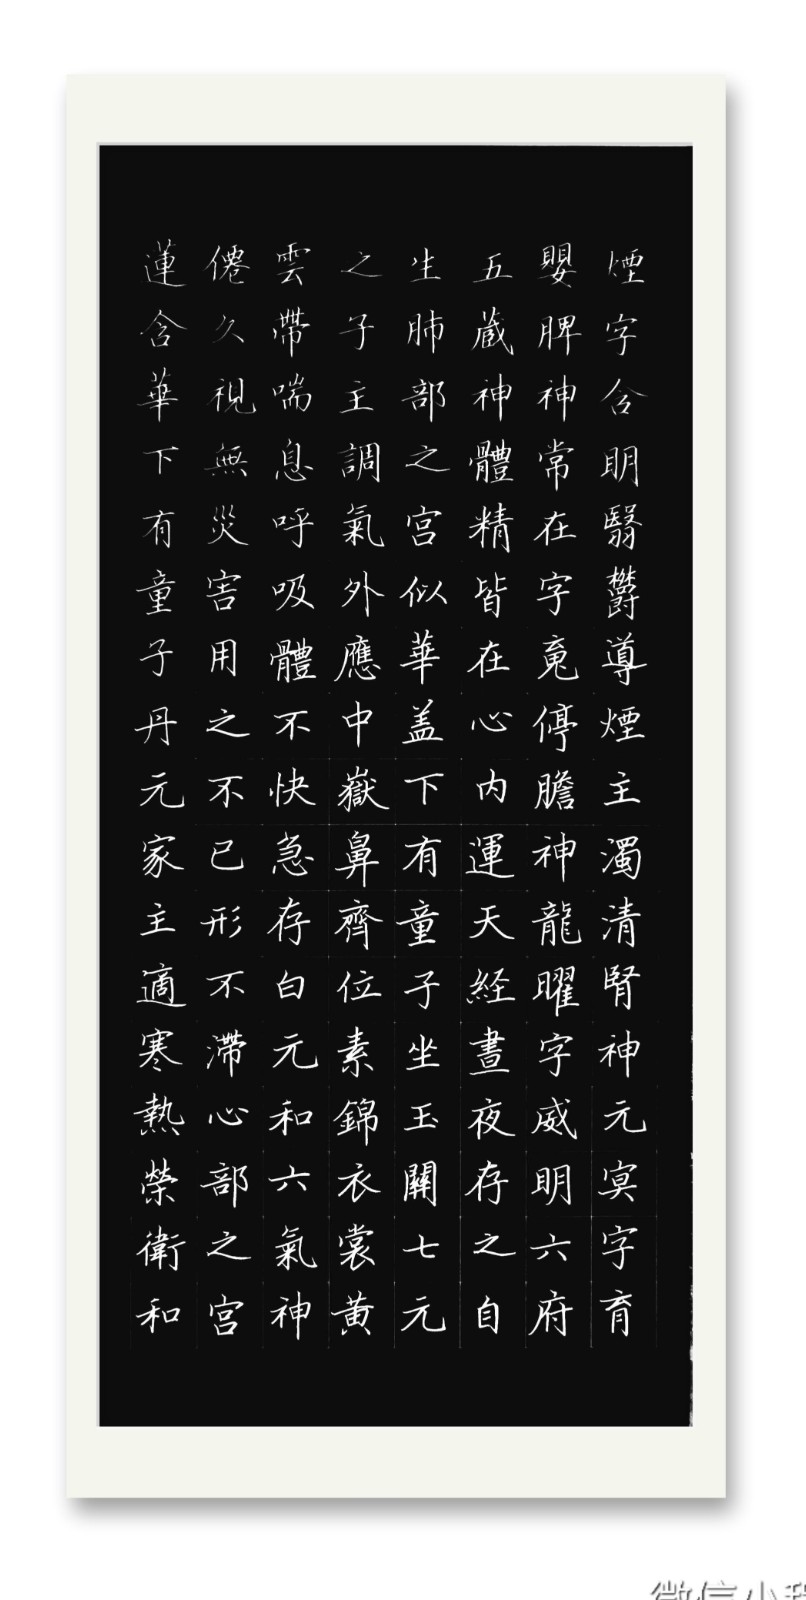 煙字含明翳欝導煙主濁清腎神元冥字育
嬰脾神常在字䰟停膽神龍曜字威明六府
五蔵神體精皆在心內運天経晝夜存之自
生肺部之宮似華盖下有童子坐玉闕七元
之子主調氣外應中嶽鼻齊位素錦衣裳黃
雲帶喘息呼吸體不快急存白元和六氣神
僊久視無災害用之不已形不滯心部之宮
蓮含華下有童子丹元家主適寒熱榮衛和
微信小程